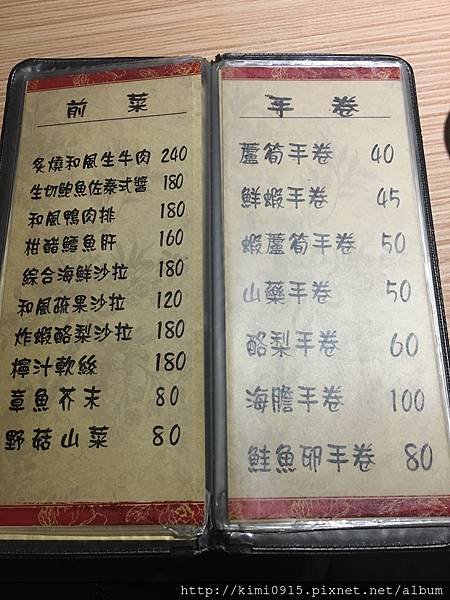 前菜
炙燒和風生牛肉 240
生切鮑魚佐泰式醬 180
和風鴨肉排 180
柑醋鱈魚肝 160
綜合海鮮沙拉 180
和風疏果沙拉 120
炸蝦酪梨沙拉 180
檸汁軟絲 180
章魚芥末 80
野菇山菜 80
手卷
蘆筍手卷 40
鮮蝦手卷 45
蝦蘆筍手卷 50
山藥手卷 50
酪梨手卷 60
海膽手卷 100
鮭魚卵手卷 80
http://kimi0915.pixnet.net/album